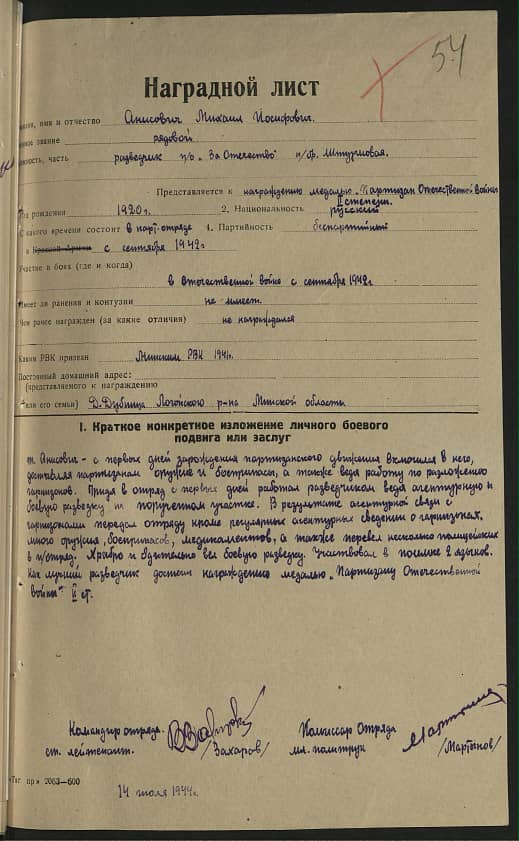 54
Наградной лист
имя и отчество Анисович Михаил Иосифович.
звание рядовой
часть разведчик п/о "За Отечество" п/бр. Штурмовая.
Представляется к награждению медалью "Партизан Отечественной войны
II степени.
Год рождения 1920г. 2. Национальность русский
С какого времени состоит в парт. отряде 4. Партийность беспартийный
в Красной Армии с сентября 1942г
Участие в боях (где и когда)
в Отечественной войне с сентября 1942г.
Имеет ли ранения и контузии не имеет.
Чем ранее награжден (за какие отличия) не награждался
Каким РВК призван Минским РВК 1941г.
Постоянный домашний адрес:
(представляемого к награждению
или его семьи) Д. Дубница Логойского р-на Минской области
I. Краткое конкретное изложение личного боевого
подвига или заслуг
т. Анисович - с первых дней зарождения партизанского движения включился в него,
доставлял партизанам оружие и боеприпасы, а также ведя работу по разложению
гарнизонов. Придя в отряд с первых дней работал разведчиком ведя агентурную и
боевую разведку на порученном участке. В результате агентурной связи с
гарнизонами передал отряду кроме регулярных агентурных сведений о гарнизонах,
много оружия, боеприпасов, медикаментов, а также перевел несколько полицейских
в п/отряд. Храбро и бдительно вел боевую разведку. Участвовал в поимке 2 языков.
Как лучший разведчик достоин награждению медалью "Партизану Отечественной
войны" II ст.
Командир отряда. Комиссар Отряда
ст. лейтенант. /Захаров/ мл. политрук /Мартынов/
пр» 2063—600
14 июля 1944г.